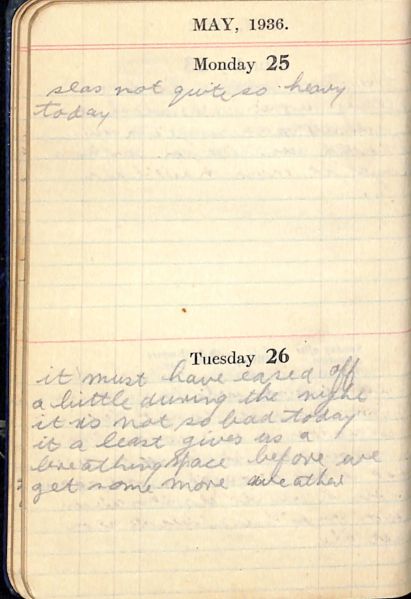 MAY, 1936.
Monday 25
seas not quite so heavy
today
Tuesday 26
it must have eased off
a little during the night
it is not so bad today
it a least gives us a
breathing space before we
get some more weather